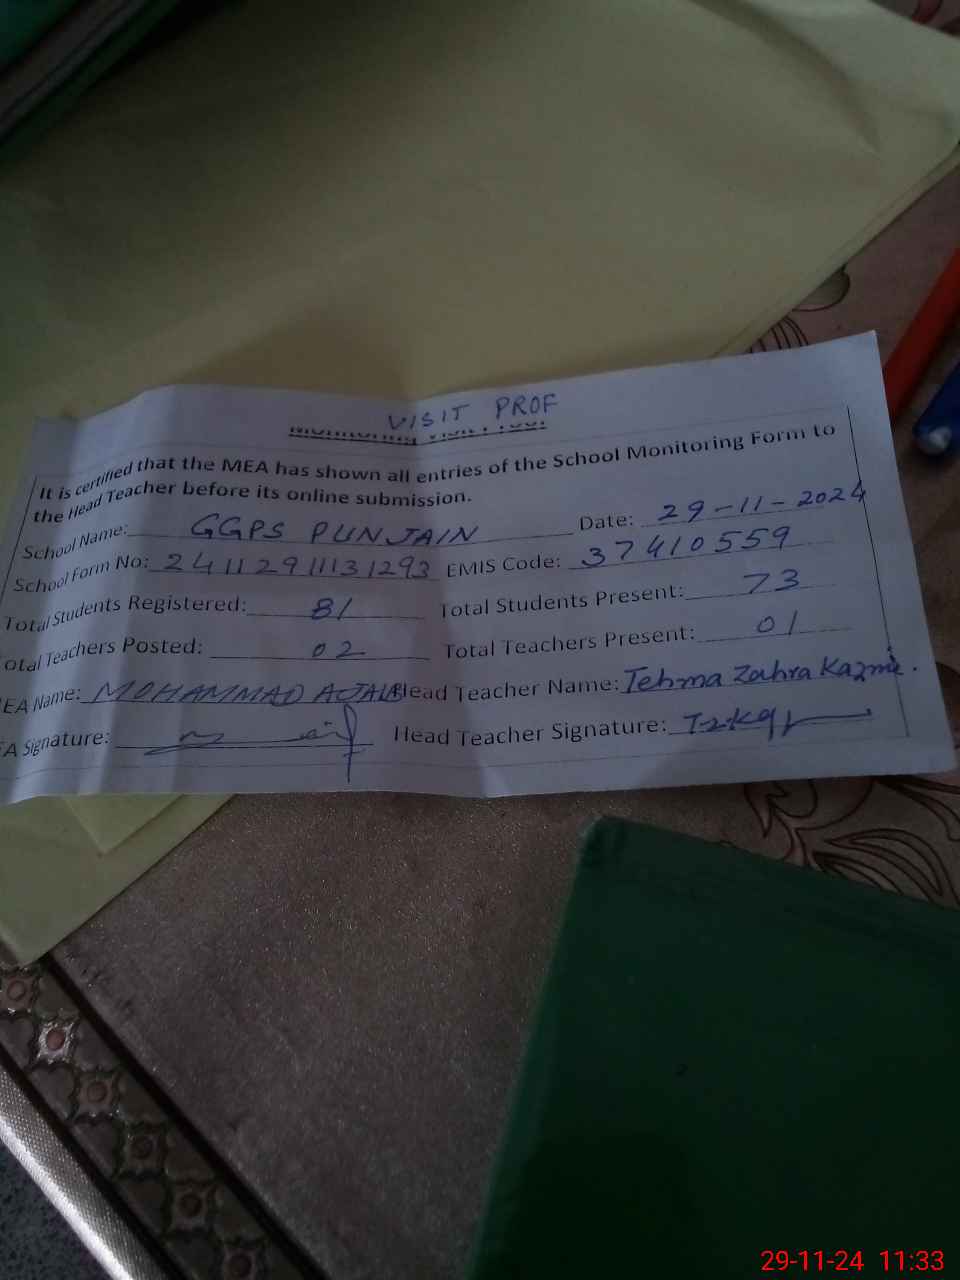 VISIT PROF
It is certified that the MEA has shown all entries of the School Monitoring Form to
the Head Teacher before its online submission.
School Name: GGPS PUNJAIN Date: 29-11-2024
School Form No: 2411291113 1293 EMIS Code: 37410559
Total Students Registered: 81 Total Students Present: 73
otal Teachers Posted: 02 Total Teachers Present: 01
EA Name: MOHAMMAD Head Teacher Name: Tehma Zahra Kazmi.
A Signature: Head Teacher Signature:
29-11-24 11:33